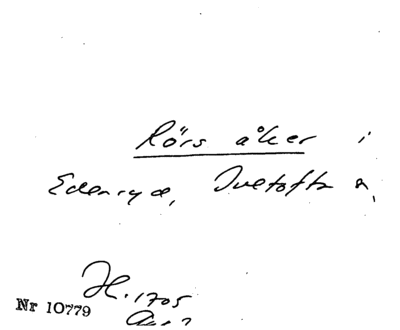 Rörs åker i
Edenryd, Ivetofta s,
H. 1705
Nr 10779